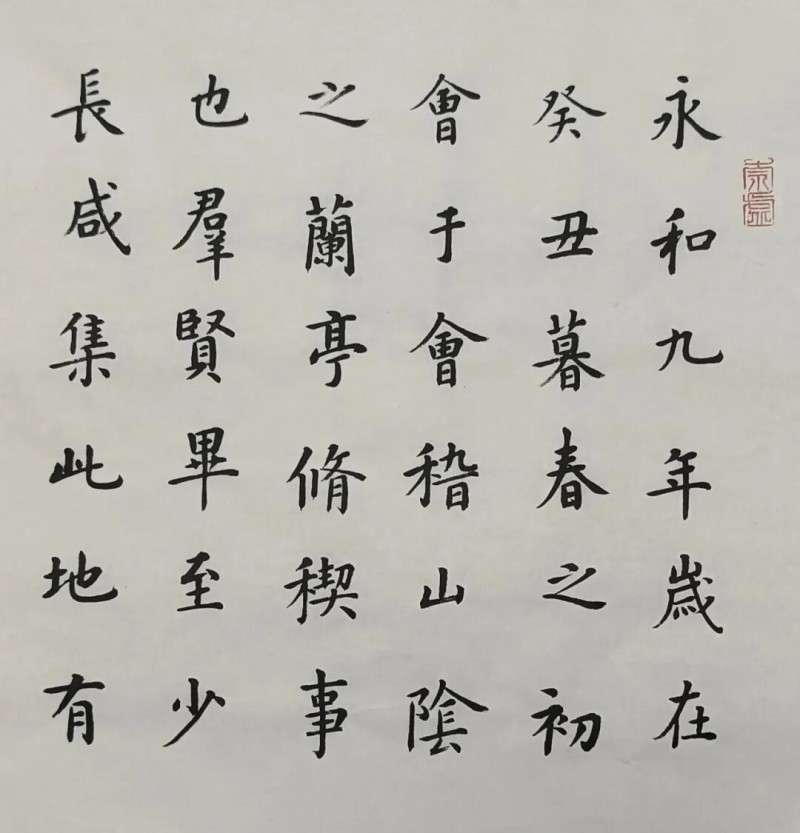 永和九年歲在
癸丑暮春之初
會于會稽山陰
之蘭亭脩稧事
也羣賢畢至少
長咸集此地有